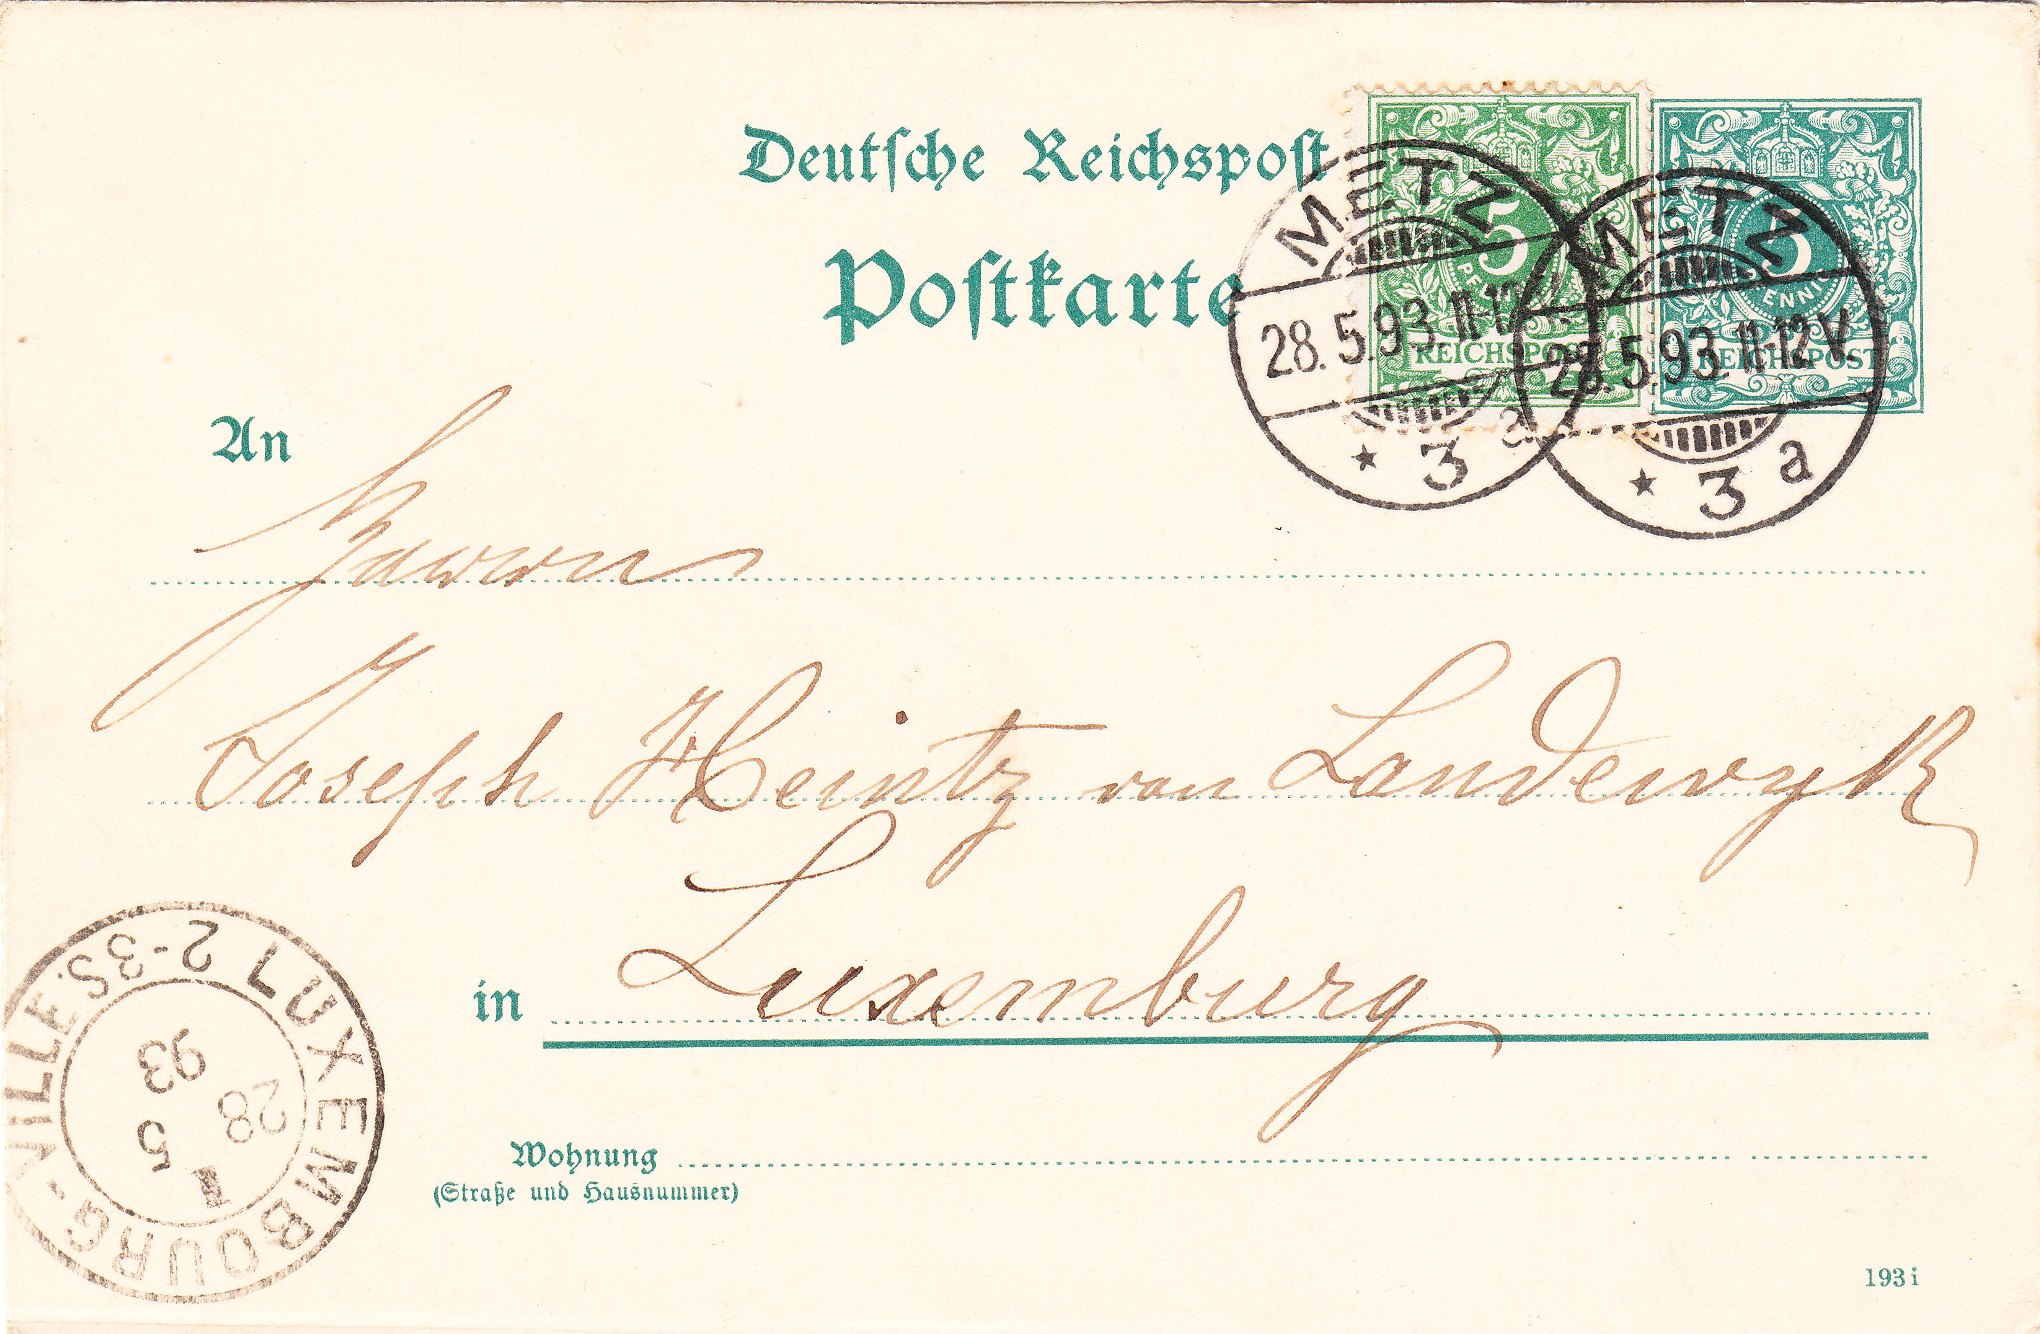 Deutsche Reichspost
Postkarte
5
PFENNIG
REICHSPOST
5
PFENNIG
REICHSPOST
METZ
28.5.93.11-12
* 3 a
METZ
28.5.93.11-12V.
* 3 a
An
Herrn
Joseph Heintz van Landewyk
in Luxemburg
Wohnung
(Straße und Hausnummer)
LUXEMBOURG-VILLE
2-3S.
28
5
93
193 i